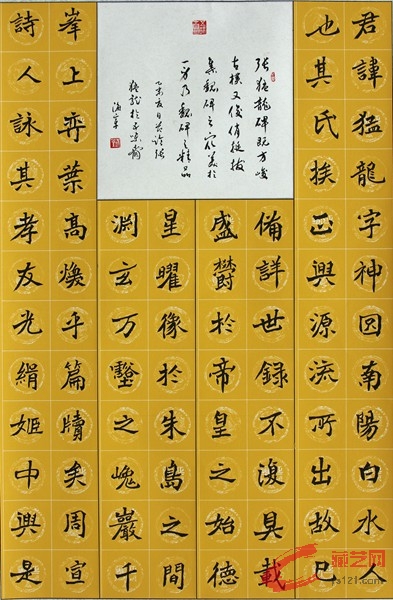 君諱猛龍字神囙南陽白水人
也其氏族興源流所出故已
備詳世録不復具載
盛欝於帝皇之始德
星曜像於朱鳥之間
淵玄万壑之巍巖千
峯上弈葉高煥乎篇牘矣周宣
詩人詠其孝友光緝姬中興是
張猛龍碑既方峻
古樸又俊俏挺拔
集魏碑之完美於
一身乃魏碑之精品
藏艺网
ys121.com